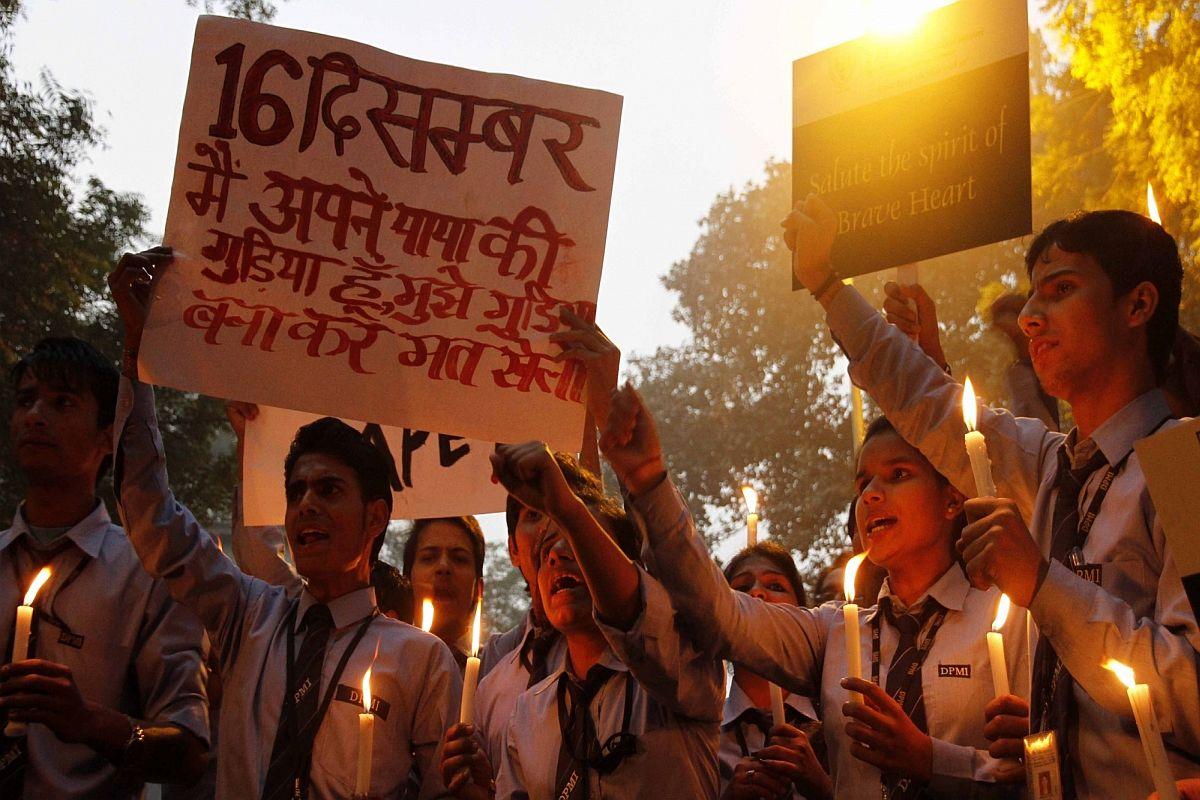 16 दिसम्बर
मैं अपने पापा की
गुड़िया हूँ, मुझे गुड़िया
बना कर मत खेलो
Salute the spirit of
Brave Heart
APE
DPMI
DPMI
DPMI
DPMI